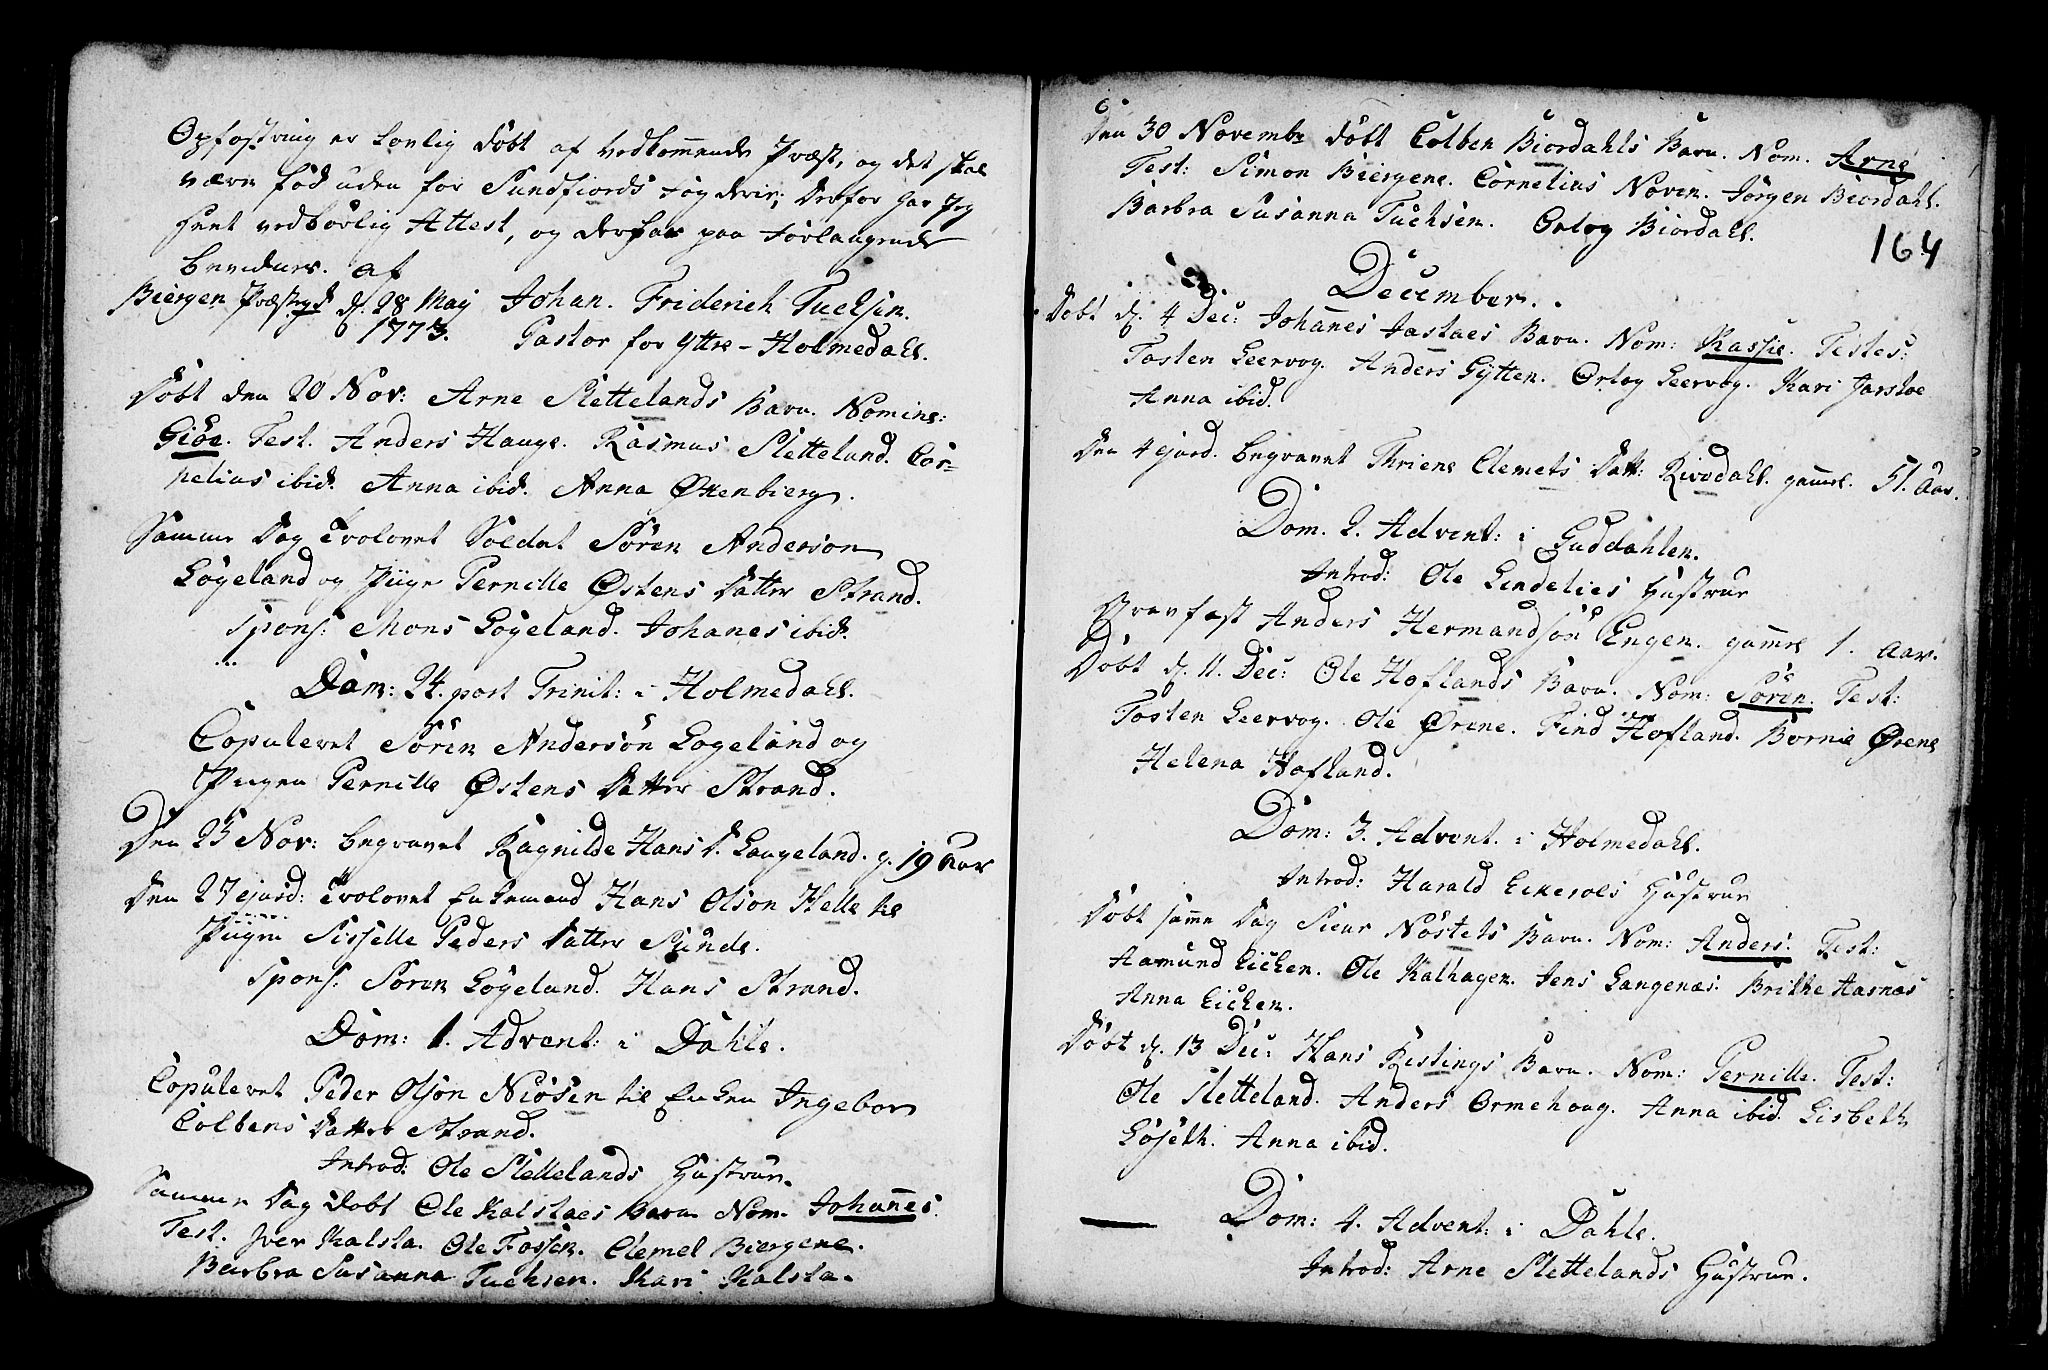 Opfostring er lovlig døbt af vedkommende Præst, og det skal
være fød uden for Sundfiords Fogderie; derfor har Jeg
hent vedbørlig Attest, og derfor paa Forlangende
bevidnes. af
Biergen Præstegd d. 28 Maij Johan. Friderich Tuchsen.
1773. Pastor for Yttre-Holmedahl.
Døbt den 20 Nov: Arne Slettelands Barn. Nomine:
Giöe. Test. Anders Hauge. Rasmus Sletteland. Cor=
nelius ibid. Anna ibid. Anna Øxenbierg.
Samme Dag Trolovet Soldat Sören Anderson
Lögeland og Piige Pernille Østens Datter Strand.
Spons: Mons Lögeland. Johanes ibid.
Dom: 24. post Trinit: i Holmedahl.
Copuleret Sören Andersön Logeland og
Piigen Pernille Østens Datter Strand.
Den 25 Nov: begravet Ragnilde Hans D. Laugeland. g. 19 Aar
Den 27 ejusd: Trolovet Enkemand Hans Olson Helle til
Piigen Sisselle Peders Datter Sunde.
Spons. Sören Lögeland. Hans Strand.
Dom: 1. Advent: i Dahle.
Copuleret Peder Olson Niösen til Enken Ingebor
Colbens Datter Strand.
Introd: Ole Slettelands Hustrue.
Samme Dag Døbt Ole Kalstaes Barn Nom. Johannes.
Test. Iver Kalsta. Ole Fossen. Clemet Biergene.
Barbra Susanna Tuchsen. Kari Kalsta.
Den 30 Novembr døbt Colben Biordahls Barn. Nom. Arne
Test: Simon Biergene. Cornelius Noven. Jörgen Biordahl.
Barbra Susanna Tuchsen. Orlog Biordahl.
164
December.
Døbt d. 4 Dec: Johannes Jastaes Barn. Nom: Kassie. Testes:
Tosten Leervog. Anders Gytten. Orlog Leervog. Kari Jarstoe
Anna ibid.
Den 4 ejusd. begravet Thriene Clemets Datt: Rivedahl. gammel. 51. Aar.
Dom. 2. Advent: i Guddahlen.
Introd: Ole Lindelies Hustrue
Gravfæst Anders Hermandsön Engen. gammel 1. Aar.
Døbt d. 11. Dec: Ole Hoflands Barn. Nom: Sören. Test:
Tosten Leervog. Ole Ørene. Find Hofland. Bornie Ørene
Helena Hofland.
Dom: 3. Advent. i Holmedahl.
Introd: Harald Eckeroes Hustrue
Døbt samme Dag Sieur Nöstets Barn. Nom: Anders. Test:
Aamund Eichen. Ole Kalhagen. Jens Langenæs. Brithe Hasnæs
Anna Eichen.
Døbt d. 13 Dec: Hans Ristings Barn. Nom: Pernille. Test:
Ole Sletteland. Anders Ormehoug. Anna ibid. Lisbeth
Löseth. Anna ibid.
Dom: 4. Advent: i Dahle.
Introd: Arne Slettelands Hustrue.